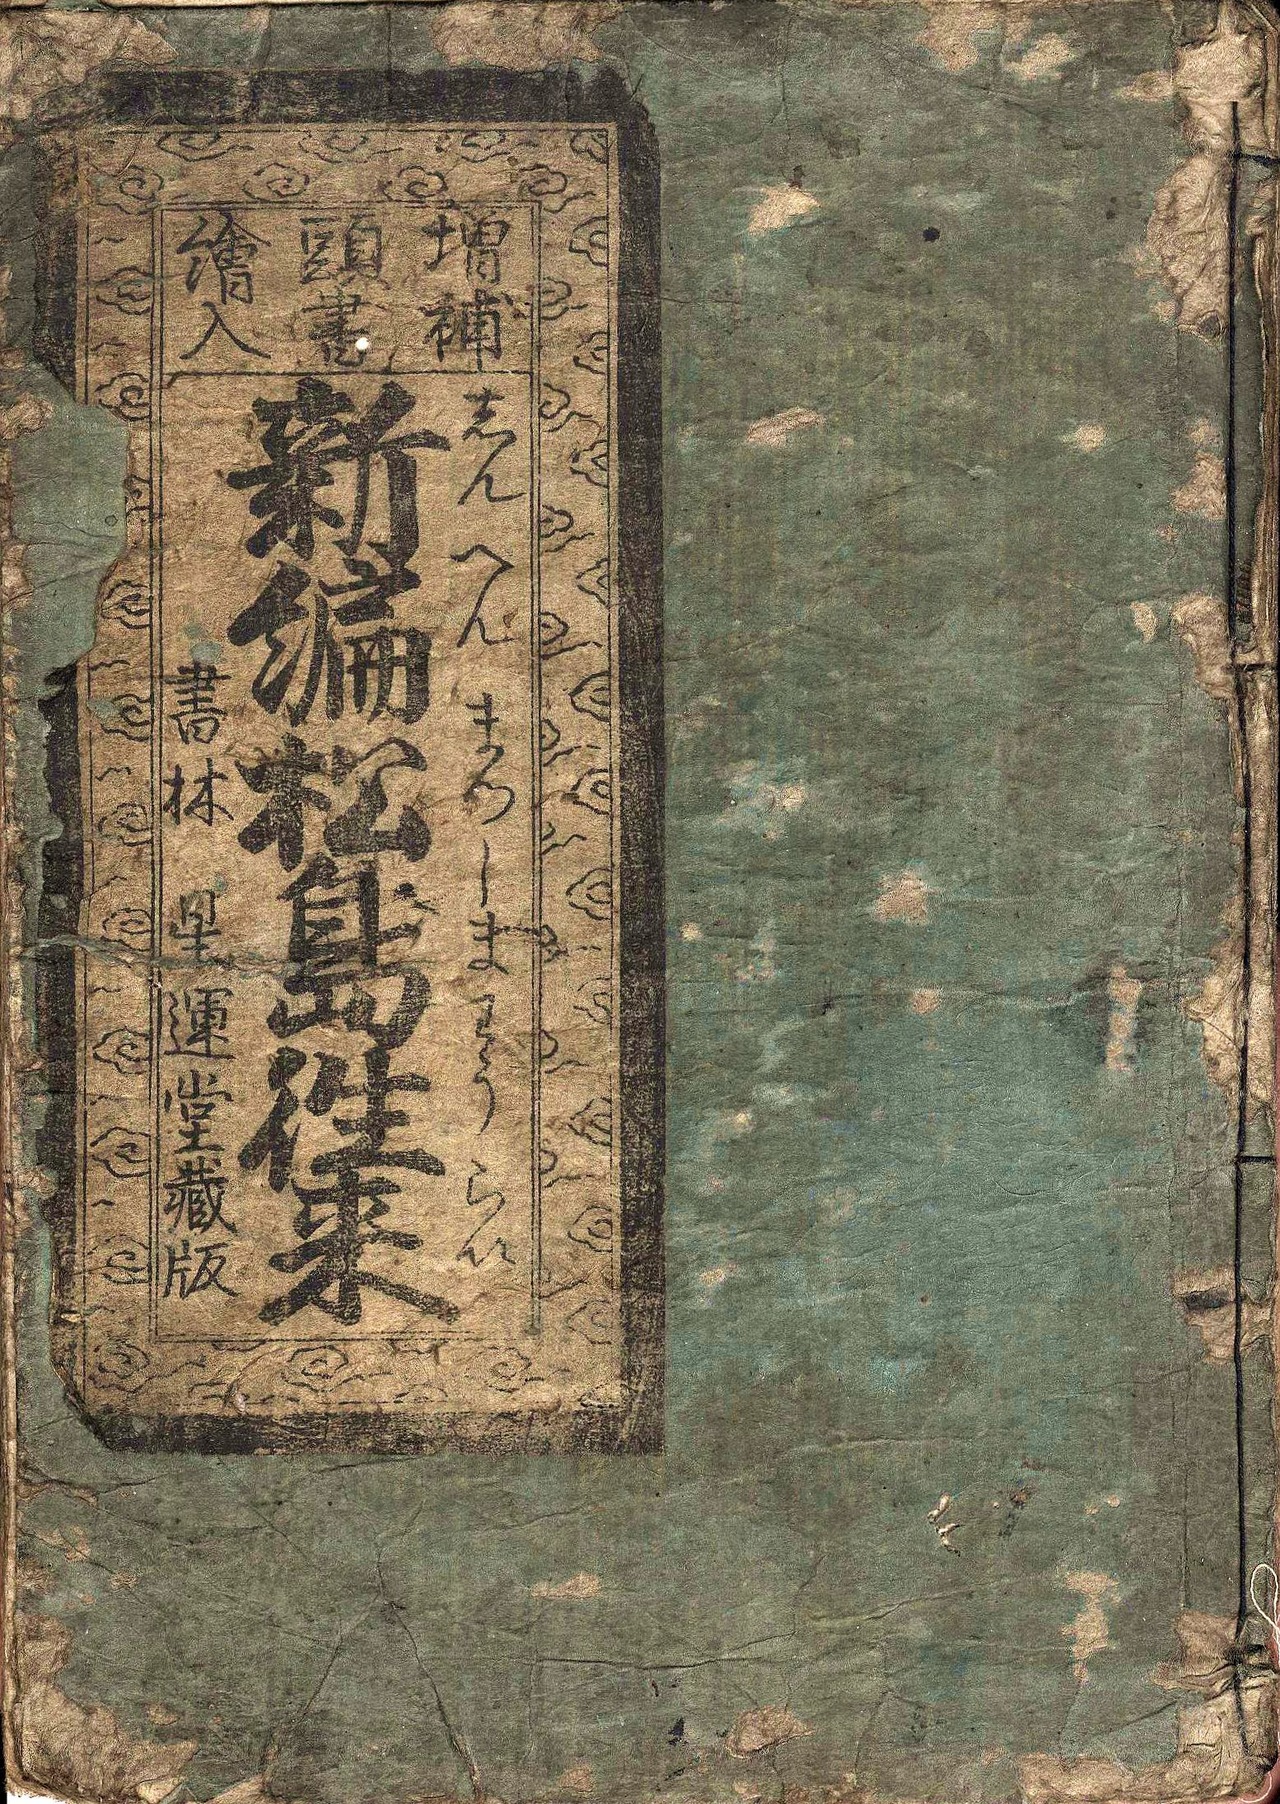 増補
頭書
繪入
志んへんまつしまわうらい
新編松島往来
書林 星運堂藏版